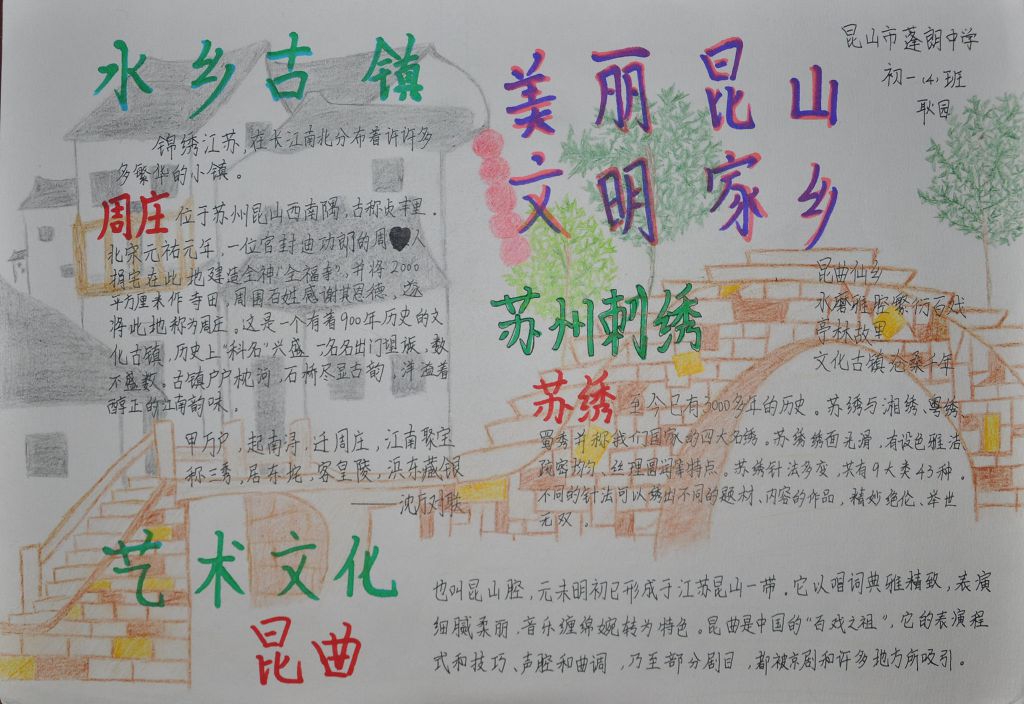 水乡古镇
锦绣江苏,在长江南北分布着许许多
多繁华的小镇。
周庄 位于苏州昆山西南隅,古称贞丰里。
北宋元祐元年,一位官封迪功郎的周 人
捐宅在此地建造全神(全福寺),并将2000
平方厘米作寺田,周围百姓感谢其恩德,
将此地称为周庄。这是一个有着900年历史的文
化古镇,历史上"科名"兴盛,一名名出门
不盛数。古镇户户枕河,石桥尽显古韵,洋溢着
醇正的江南韵味。
甲万户,起南浔,迁周庄,江南聚宝
称三秀,居东坨,客皇陵,浜东藏银
——沈 对联
美丽昆山
文明家乡
昆山市蓬朗中学
初一(4)班
耿园
昆曲仙乡
水磨雅腔繁衍百戏
亭林故里
文化古镇沧桑千年
苏州刺绣
苏绣 至今已有3000多年的历史。苏绣与湘绣、粤绣、
蜀秀并称我们国家的四大名绣。苏绣绣面光滑,有设色雅洁、
疏密均匀、丝理圆润等特点。苏绣针法多变,共有9大类43种。
不同的针法可以绣出不同的题材、内容的作品,精妙绝伦、举世
无双。
艺术文化
昆曲
也叫昆山腔,元末明初已形成于江苏昆山一带。它以唱词典雅精致,表演
细腻柔丽,音乐缠绵婉转为特色。昆曲是中国的"百戏之祖",它的表演程
式和技巧、声腔和曲调,乃至部分剧目,都被京剧和许多地方所吸引。